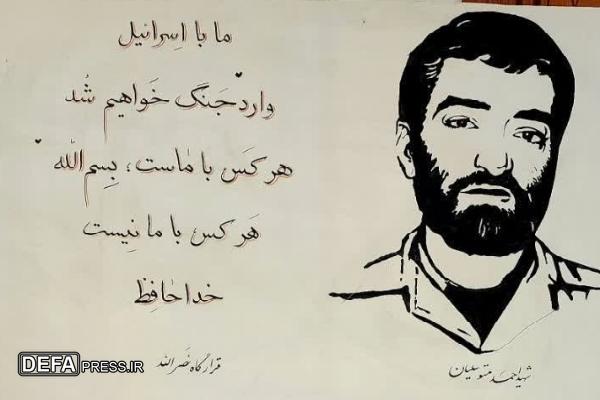 ما با اِسرائیل
وارد جَنگ خَواهیم شُد
هر کَس با ماست، بِسم الله
هَر کس با ما نِیست
خدا حافِظ
قرارگاه نَصر الله
شهید احمد متوسلیان
DEFAPRESS.IR